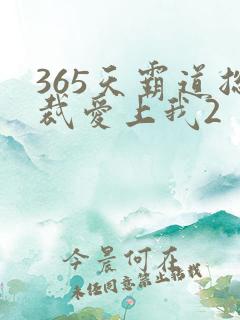 365天霸道总
裁爱上我2
今晨何在
未经同意禁止转载